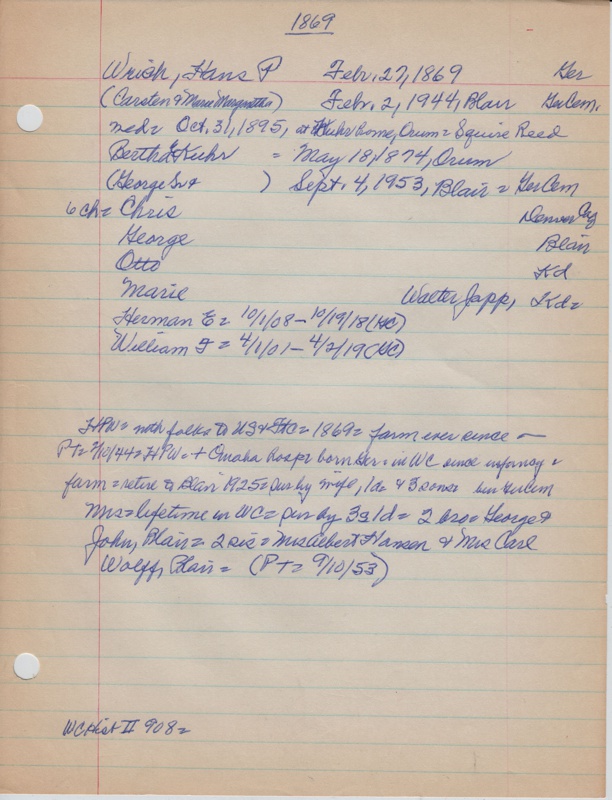 1869
Wrich, Hans P Feb. 27, 1869 Ger
(Carsten & Marie Margaretha) Feb. 2, 1944, Blair GerCem.
med= Oct. 31, 1895, at Kuhr home, Orum = Squire Reed
Bertha Kuhr = May 18, 1874, Orum
(George Sr & ) Sept. 4, 1953, Blair = GerCem
6 ch = Chris Denver
George Blair
Otto Kd
Marie Walter Japp, Kd=
Herman E = 10/1/08 - 10/19/18 (HC)
William F = 4/1/01 - 4/2/19 (HC)
HPW= with folks to US & = 1869 = farm ever since -
PT= 2/10/44 = HPW = + Omaha hosp = born Ger = in WC since infancy =
farm = retire to Blair 1925 = sur by wife, 1d = & 3 sons = bur GerCem
Mrs = lifetime in WC = sur by 3s 1d = 2 bro = George &
John, Blair = 2 sis = Mrs Albert Hansen & Mrs Carl
Wolff, Blair = (PT = 9/10/53)
WC Hist II 908 =